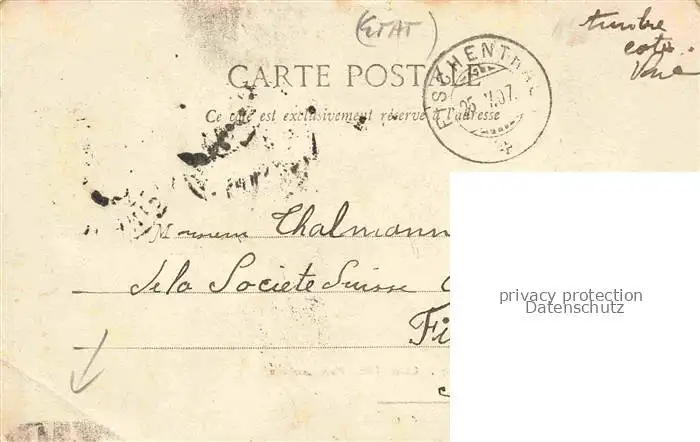 (ETAT)
timbre
coté
vue
CARTE POSTALE
Ce côté est exclusivement réservé à l'adresse
FISCHENTHAL
25. V. 07.
Monsieur Thalmann
de la Societe Suisse
Fi
privacy protection
Datenschutz